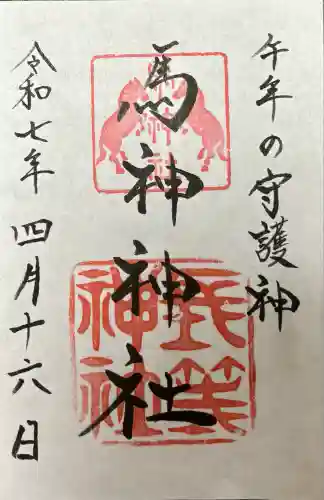 午年の守護神
馬神神社
令和七年 四月十六日